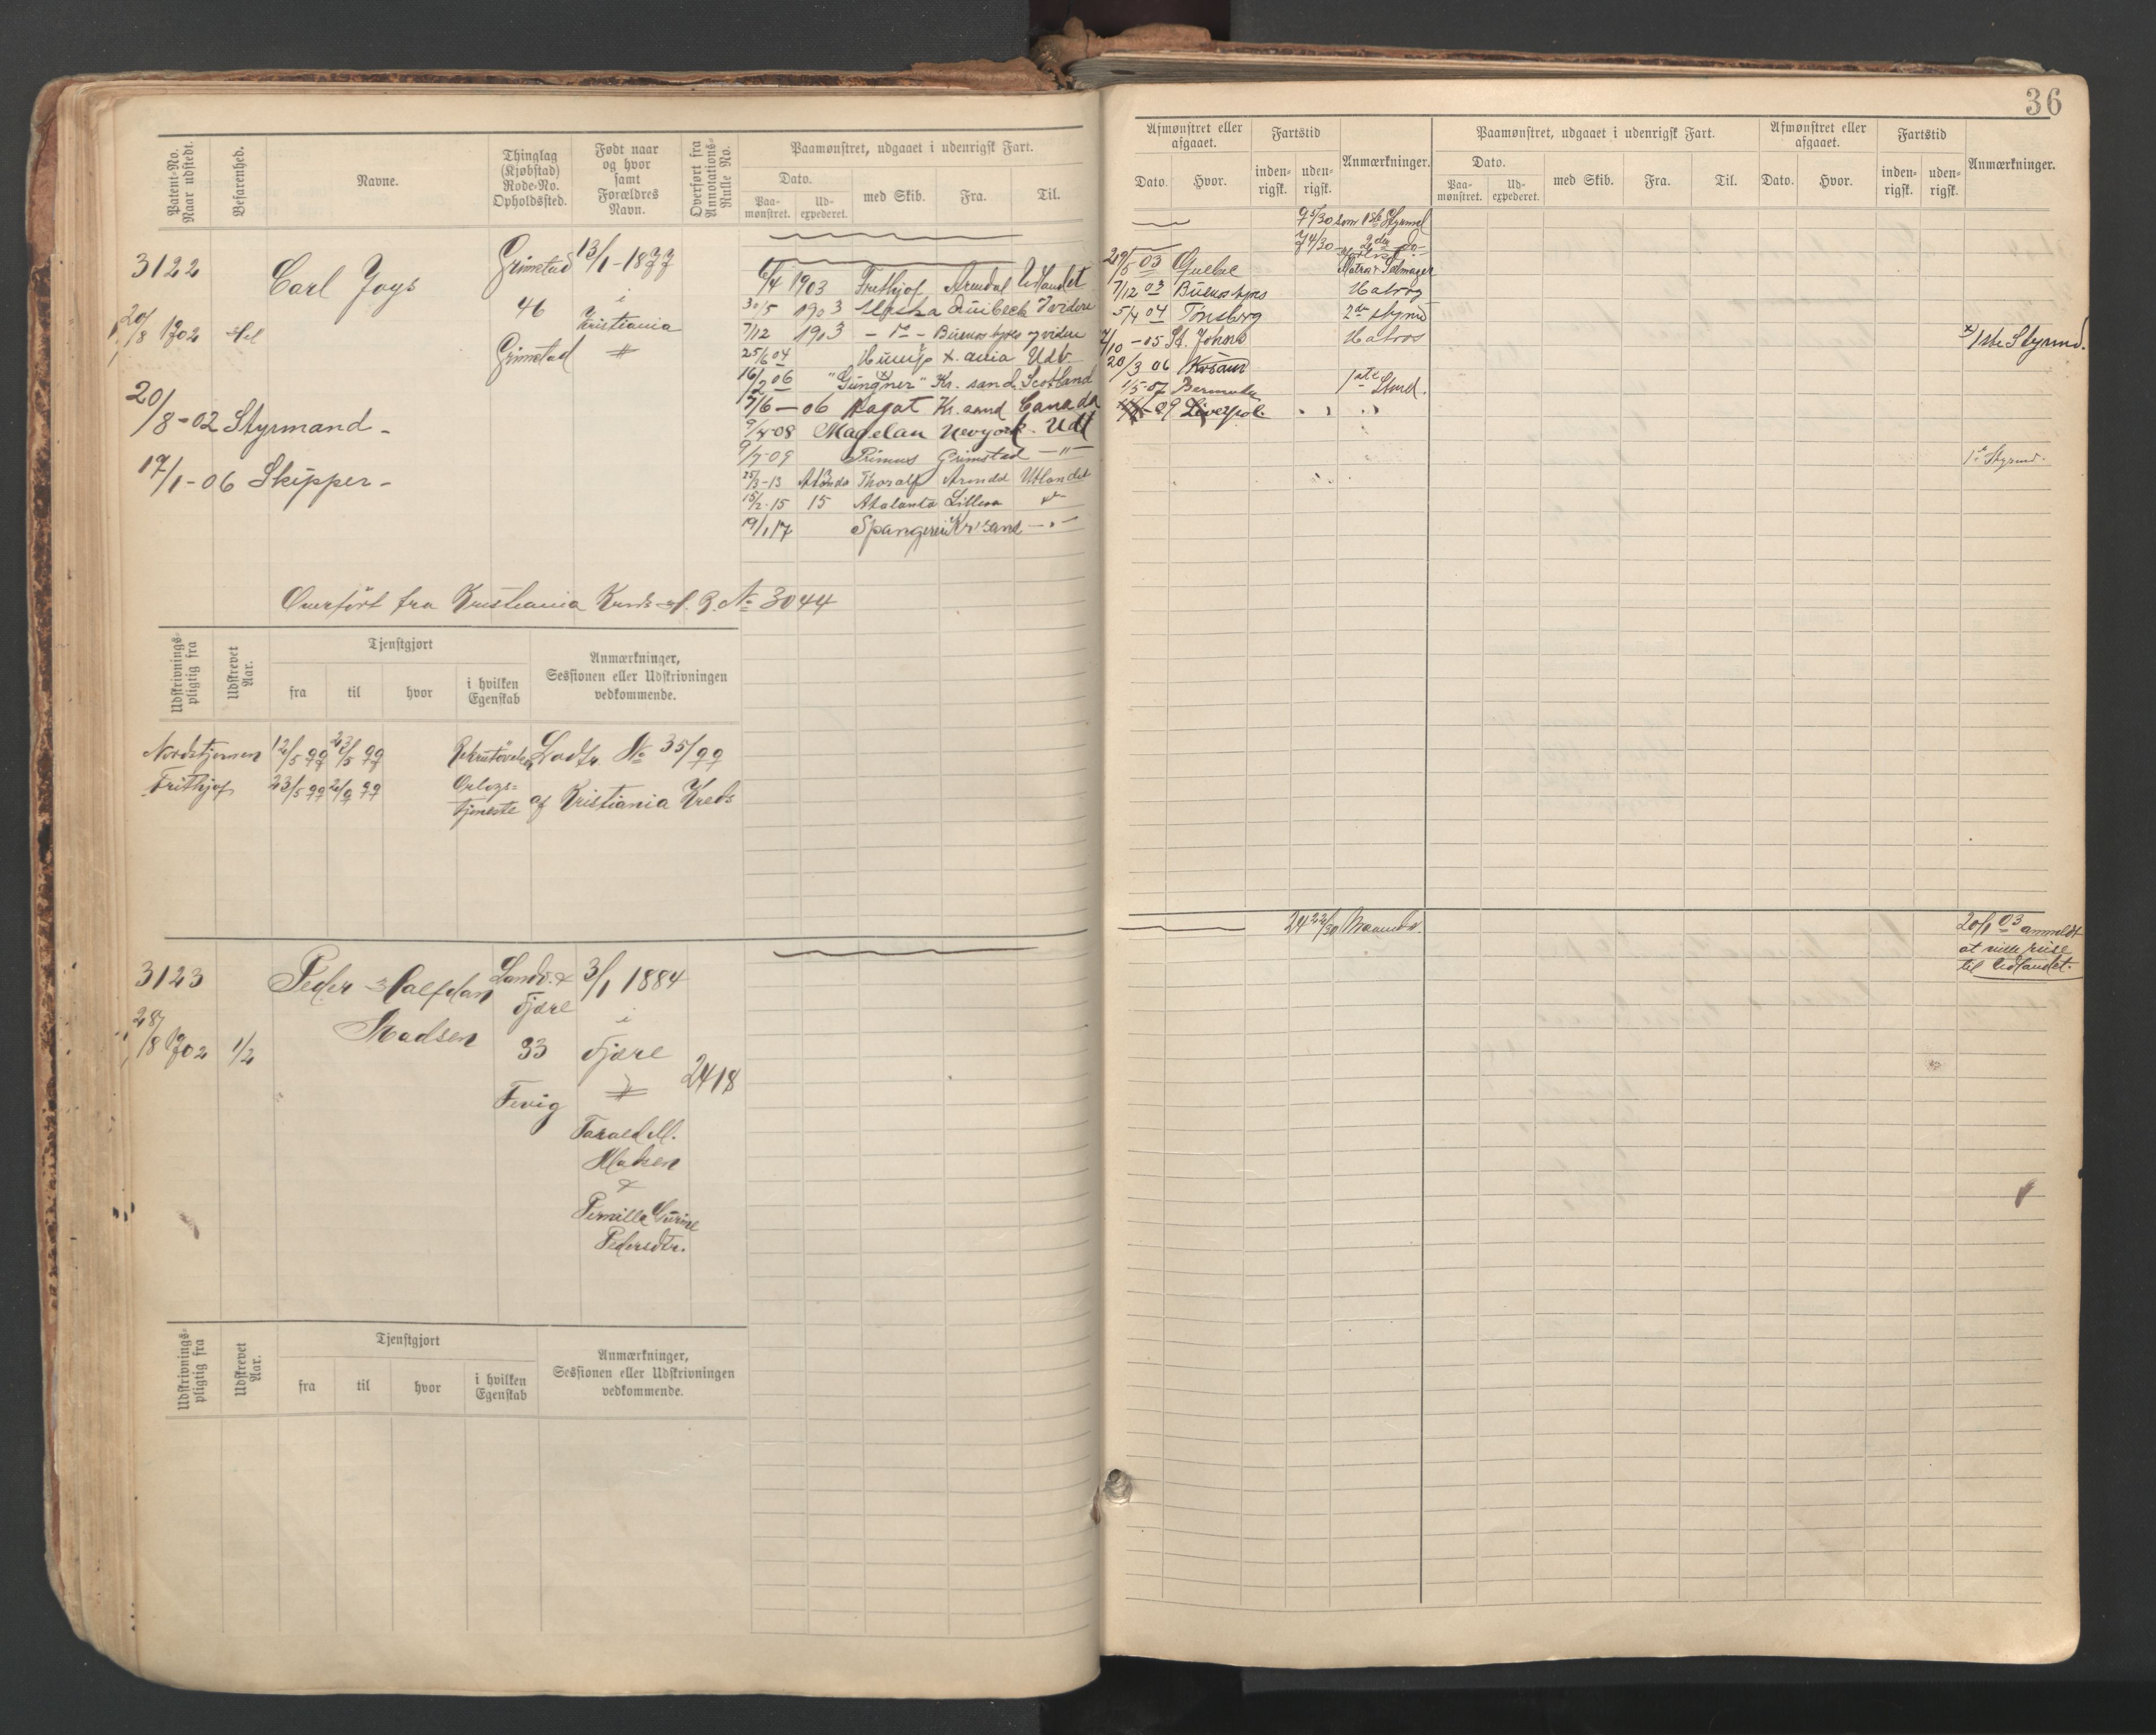 36
Patent-No.
Naar udstedt.
Befarenhed.
Navne.
Thinglag
(Kjøbstad)
Rode-No.
Opholdssted.
Født naar
og hvor
samt
Forældres
Navn.
Overført fra
Annotations-
Rulle No.
Paamønstret, udgaaet i udenrigsk Fart.
Dato.
Paa-
mønstret.
Ud-
expederet.
med Skib.
Fra.
Til.
3122
20/8 1902
Carl Joys
Grimstad
46
Grimstad
13/1-1877
i
Kristiania
20/8-02 Styrmand -
17/1-06 Skipper -
6/4 1903 Frithjof Arendal Udlandet
30/5 1903 Alaska Quibeck Videre
7/12 1903 - " - Buenos Ayres og videre
25/6 04 X.ania Udl.
16/2 06 "Gungner" Kr.sand Scotland
7/6-06 Ragat Kr.sand Canada
9/4-08 Magelan Newyork Udl
9/7-09 Primus Grimstad - " -
25/3-13 Thoralf Arendal Utlandet
15/2-15 15 Atalanta Lillesa
19/1 17 Spangereid Kr'sand - " -
Overført fra Kristiania Kreds A. R. No 3044
Udskrivnings-
pligtig fra
Udskrevet
Aar.
Tjenstgjort
fra
til
hvor
i hvilken
Egenskab
Anmærkninger,
Sessionen eller Udskrivningen
vedkommende.
Nordstjernen 12/5 99 23/5 99
Frithjof 23/5 99
Orlogs-
tjeneste
Lodtr. No 35/99
af Kristiania Kreds
3123
28/8 1902
1/2
Peder Halfdan
Madsen
Landv. &
Fjære
33
Fevig
3/1 1884
i
Fjære
Tarald M.
Madsen
&
Pernille Gurine
Pedersdtr.
2418
Udskrivnings-
pligtig fra
Udskrevet
Aar.
Tjenstgjort
fra
til
hvor
i hvilken
Egenskab
Anmærkninger,
Sessionen eller Udskrivningen
vedkommende.
Afmønstret eller
afgaaet.
Dato.
Hvor.
Fartstid
inden-
rigsk.
uden-
rigsk.
Anmærkninger.
Paamønstret, udgaaet i udenrigsk Fart.
Dato.
Paa-
mønstret.
Ud-
expederet.
med Skib.
Fra.
Til.
Afmønstret eller
afgaaet.
Dato.
Hvor.
Fartstid
inden-
rigsk.
uden-
rigsk.
Anmærkninger.
9 5/30 som 1ste Styrmd
74/30 - 2den - do -
29/5 03 Quebec Matr. & Seilmager
7/12 03 Buenos Ayres Matros
5/4 04 Tønsberg 2den Styrmd
7/10-05 St. Johns Matros
x) 1ste Styrmd.
20/3 06 Krsand
1/5-07 Bermuda 1ste Stmd.
09 Liverpol. " " "
1ste Styrmd.
24 22/30 Maaneder.
20/1 03 anmeldt
at ville reise
til Udlandet.